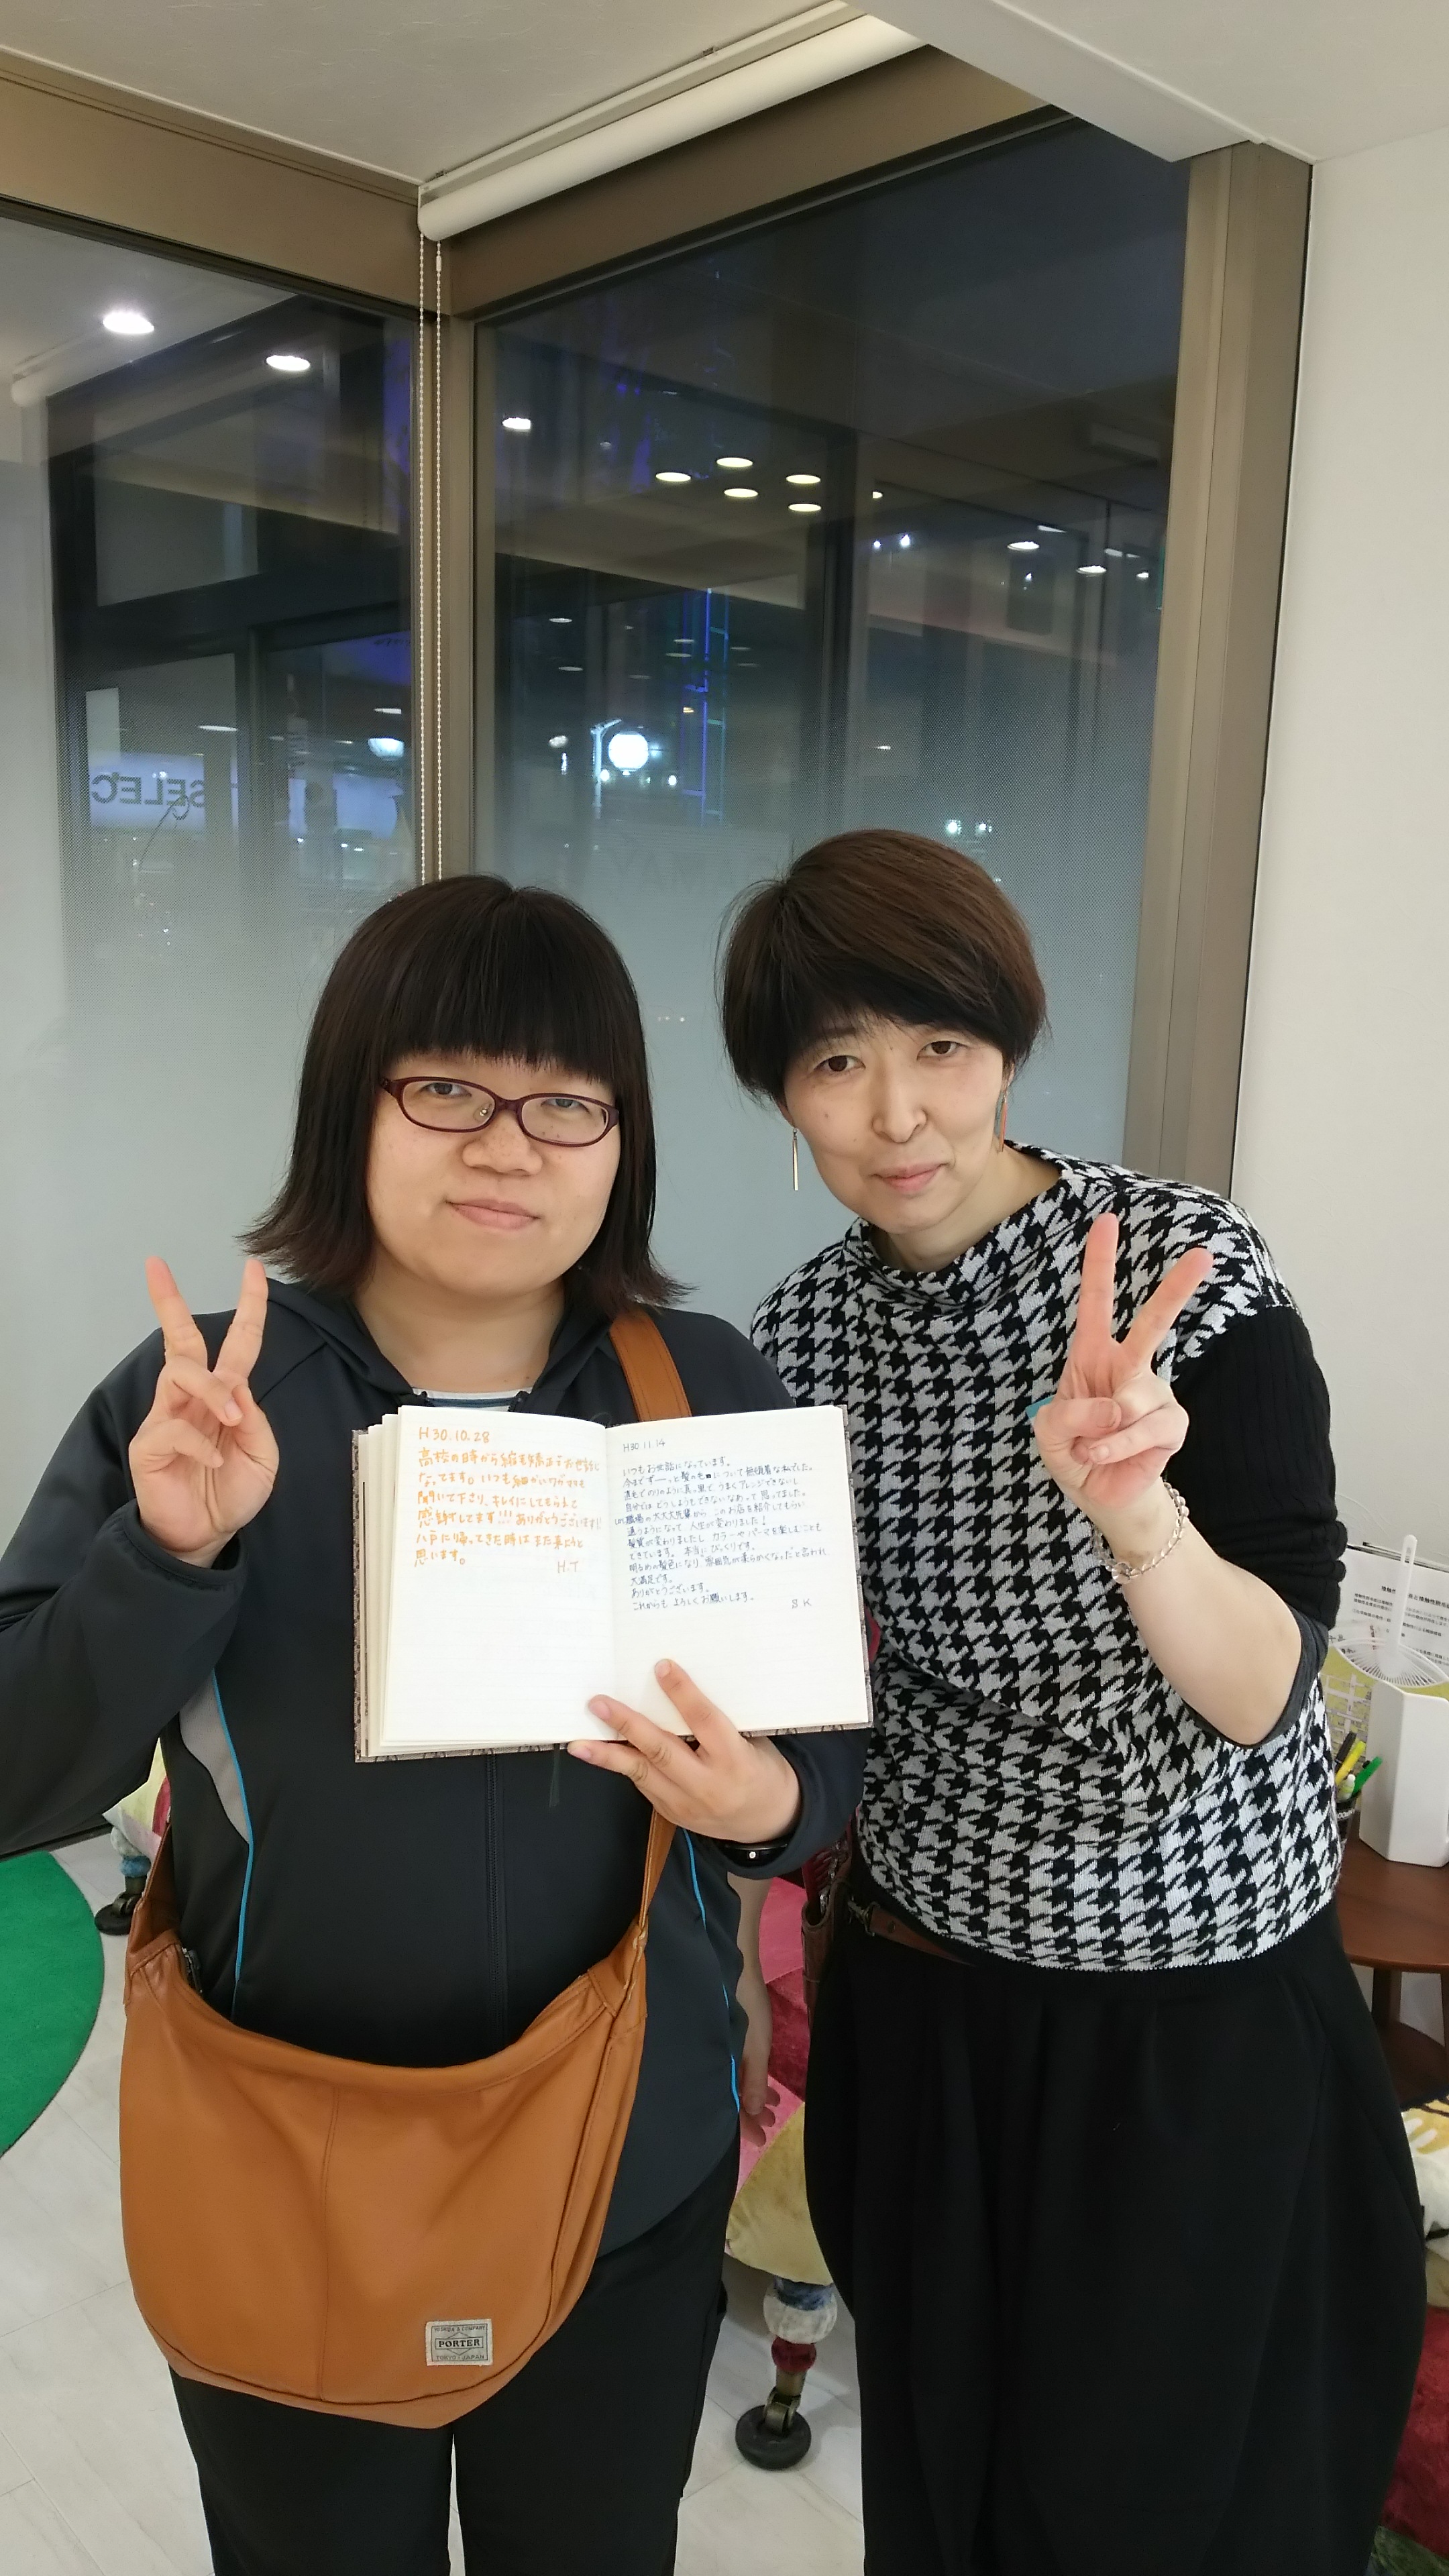 SELEC
H30.10.28
高校の時から縮毛矯正でお世話に
なってます。いつも細かいワガママも
聞いて下さり、キレイにしてもらえて
感謝してます!!! ありがとうございます!!
八戸に帰ってきた時はまた来ようと
思います。
H.T
H30.11.14
いつもお世話になっています。
今までずーーっと髪の毛について無頓着な私でした。
直毛でのりのように真っ黒で、うまくアレンジできないし
自分ではどうしようもできないなぁって思ってました。
職場の大大大先輩から、このお店を紹介してもらい
通うようになって、人生が変わりました!
髪質が変わりましたし、カラーやパーマを楽しむことも
できています。本当にびっくりです。
明るめの髪色になり、雰囲気が柔らかくなったと言われ
大満足です。
ありがとうございます。
これからもよろしくお願いします。
S K
PORTER
TOKYO JAPAN